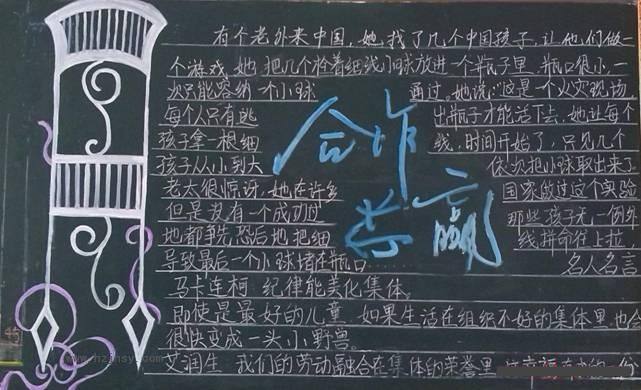 有个老外来中国,她找了几个中国孩子,让他们做一
个游戏,她把几个拴着细线小球放进一个瓶子里,瓶口很小,一
次只能容纳一个小球 通过。她说:"这是一个火灾现场,
每个人只有逃 出瓶子才能活下去,她让每个
孩子拿一根细 线,时间开始了,只见几个
孩子从小到大 依次把小球取出来了
老太很惊讶,她在许多 国家做过这个实验
但是没有一个成功过 那些孩子无一例外
地都争先恐后地把细 线拼命往上拉,
导致最后一个小球堵在瓶口 名人名言
合作共赢
马卡连柯 纪律能美化集体。
即使是最好的儿童,如果生活在组织不好的集体里,也会
很快变成一头小野兽。
艾润生 我们的劳动融合在集体的荣誉里